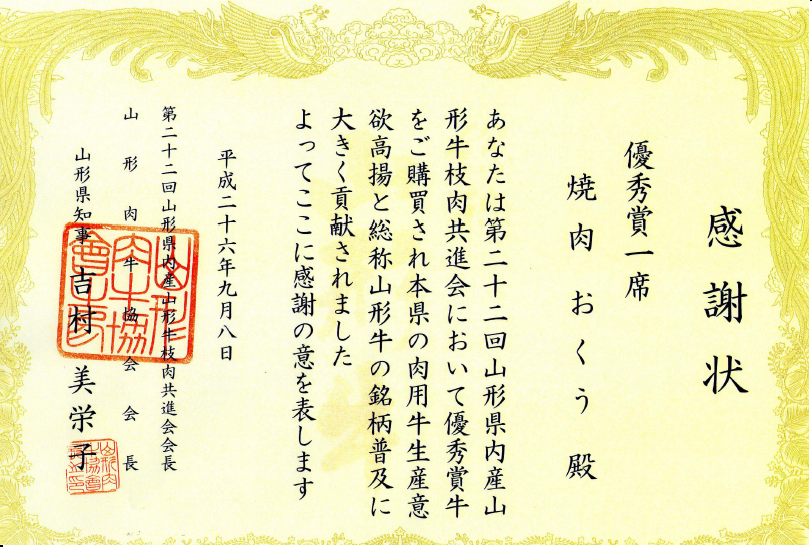 感謝状
優秀賞一席
焼肉おくう殿
あなたは第二十二回山形県内産山
形牛枝肉共進会において優秀賞牛
をご購買され本県の肉用牛生産意
欲高揚と総称山形牛の銘柄普及に
大きく貢献されました
よってここに感謝の意を表します
平成二十六年九月八日
第二十二回山形県内産山形牛枝肉共進会会長
山形肉牛協会会長
山形県知事 吉村美栄子